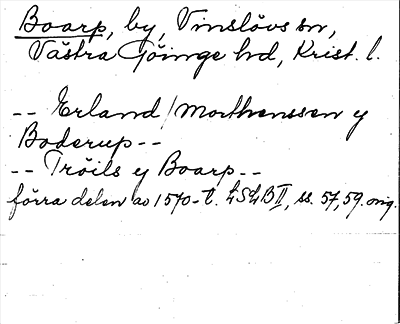 Boarp, by, Vinslövs sn,
Västra Göinge hd, Krist. l.
-- Erland / Morthenssen y
Boderup --
-- Tröils y Boarp --
förra delen av 1570-t. LSLB II, ss. 57, 59. orig.